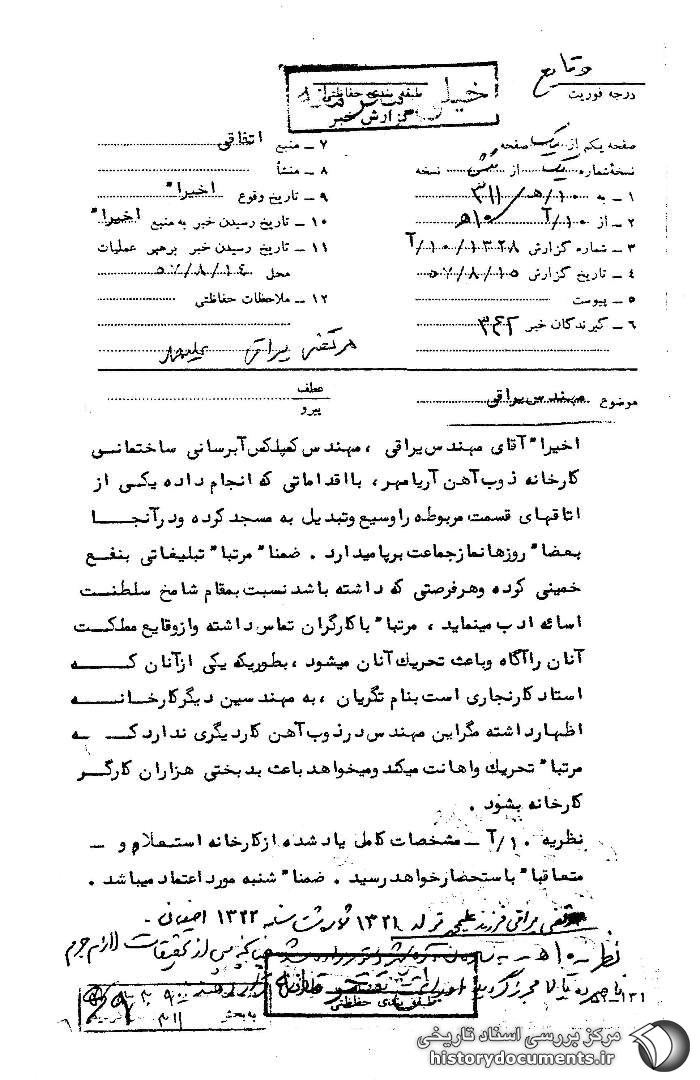 وقایع
درجه فوریت
طبقه بندی حفاظتی
گزارش خبر
صفحه یکم از یک صفحه
نسخه شماره یک از شش نسخه
۱ ـ به ۱۰/ه‍/۳۱۱
۲ ـ از ۱۰/آ ۱۰ه‍
۳ ـ شماره گزارش ۱۳۲۸/۱۰/آ
۴ ـ تاریخ گزارش ۵۷/۸/۱۵
۵ ـ پیوست
۶ ـ گیرندگان خبر ۳۴۲
۷ ـ منبع اتفاقی
۸ ـ منشأ
۹ ـ تاریخ وقوع اخیرا"
۱۰ ـ تاریخ رسیدن خبر به منبع اخیرا"
۱۱ ـ تاریخ رسیدن خبر برهبر عملیات
محل ۵۷/۸/۱۴
۱۲ ـ ملاحظات حفاظتی
موضوع مهندس یراقی
عطف
پیرو
اخیرا" آقای مهندس یراقی ، مهندس کمپلکس آبرسانی ساختمانی
کارخانه ذوب آهن آریامهر، با اقداماتی که انجام داده یکی از
اتاقهای قسمت مربوطه را وسیع وتبدیل به مسجد کرده ودرآنجا
بعضا" روزها نماز جماعت برپا میدارد . ضمنا" مرتبا" تبلیغاتی بنفع
خمینی کرده وهرفرصتی که داشته باشد نسبت بمقام شامخ سلطنت
اسائه ادب مینماید ، مرتبا" با کارگران تماس داشته وازوقایع مملکت
آنان را آگاه وباعث تحریك آنان میشود ، بطوریکه یکی ازآنان که
استاد کارنجاری است بنام تگریان ، به مهندسین دیگر کارخانه
اظهارداشته مگراین مهندس درذوب آهن کاردیگری ندارد که به
مرتبا" تحریك واهانت میکند ومیخواهد باعث بدبختی هزاران کارگر
کارخانه بشود .
نظریه ۱۰/آ ـ مشخصات کامل یاد شده ازکارخانه استعلام و ـ
متعاقبا" باستحضارخواهد رسید . ضمنا" شنبه مورد اعتماد میباشد .
فرزند ۱۳۲۱ ۱۳۲۲
طبقه بندی حفاظتی
به بخش ۳۱۱
مرکز بررسی اسناد تاریخی
historydocuments.ir